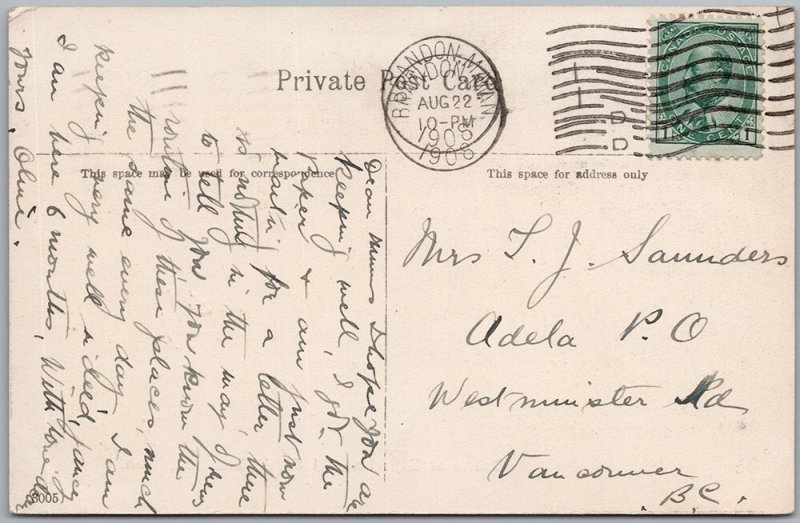 Private Post Card
BRANDON, MAN.
AUG 22
10-PM
1908
CANADA POSTAGE
1 ONE CENT 1
This space may be used for correspondence
This space for address only
Mrs T. J. Saunders
Adela P.O
Westminister Rd
Vancouver
B.C.
Dear Minnos I hope you are
keeping well, I got the
paper & am just now
waitin for a letter there
is nothing in the way of news
to tell you you know the
routine of these places, much
the same every day. I am
keeping very well indeed, since
I am here 6 months, With love dear
Yours, Olive.
8005